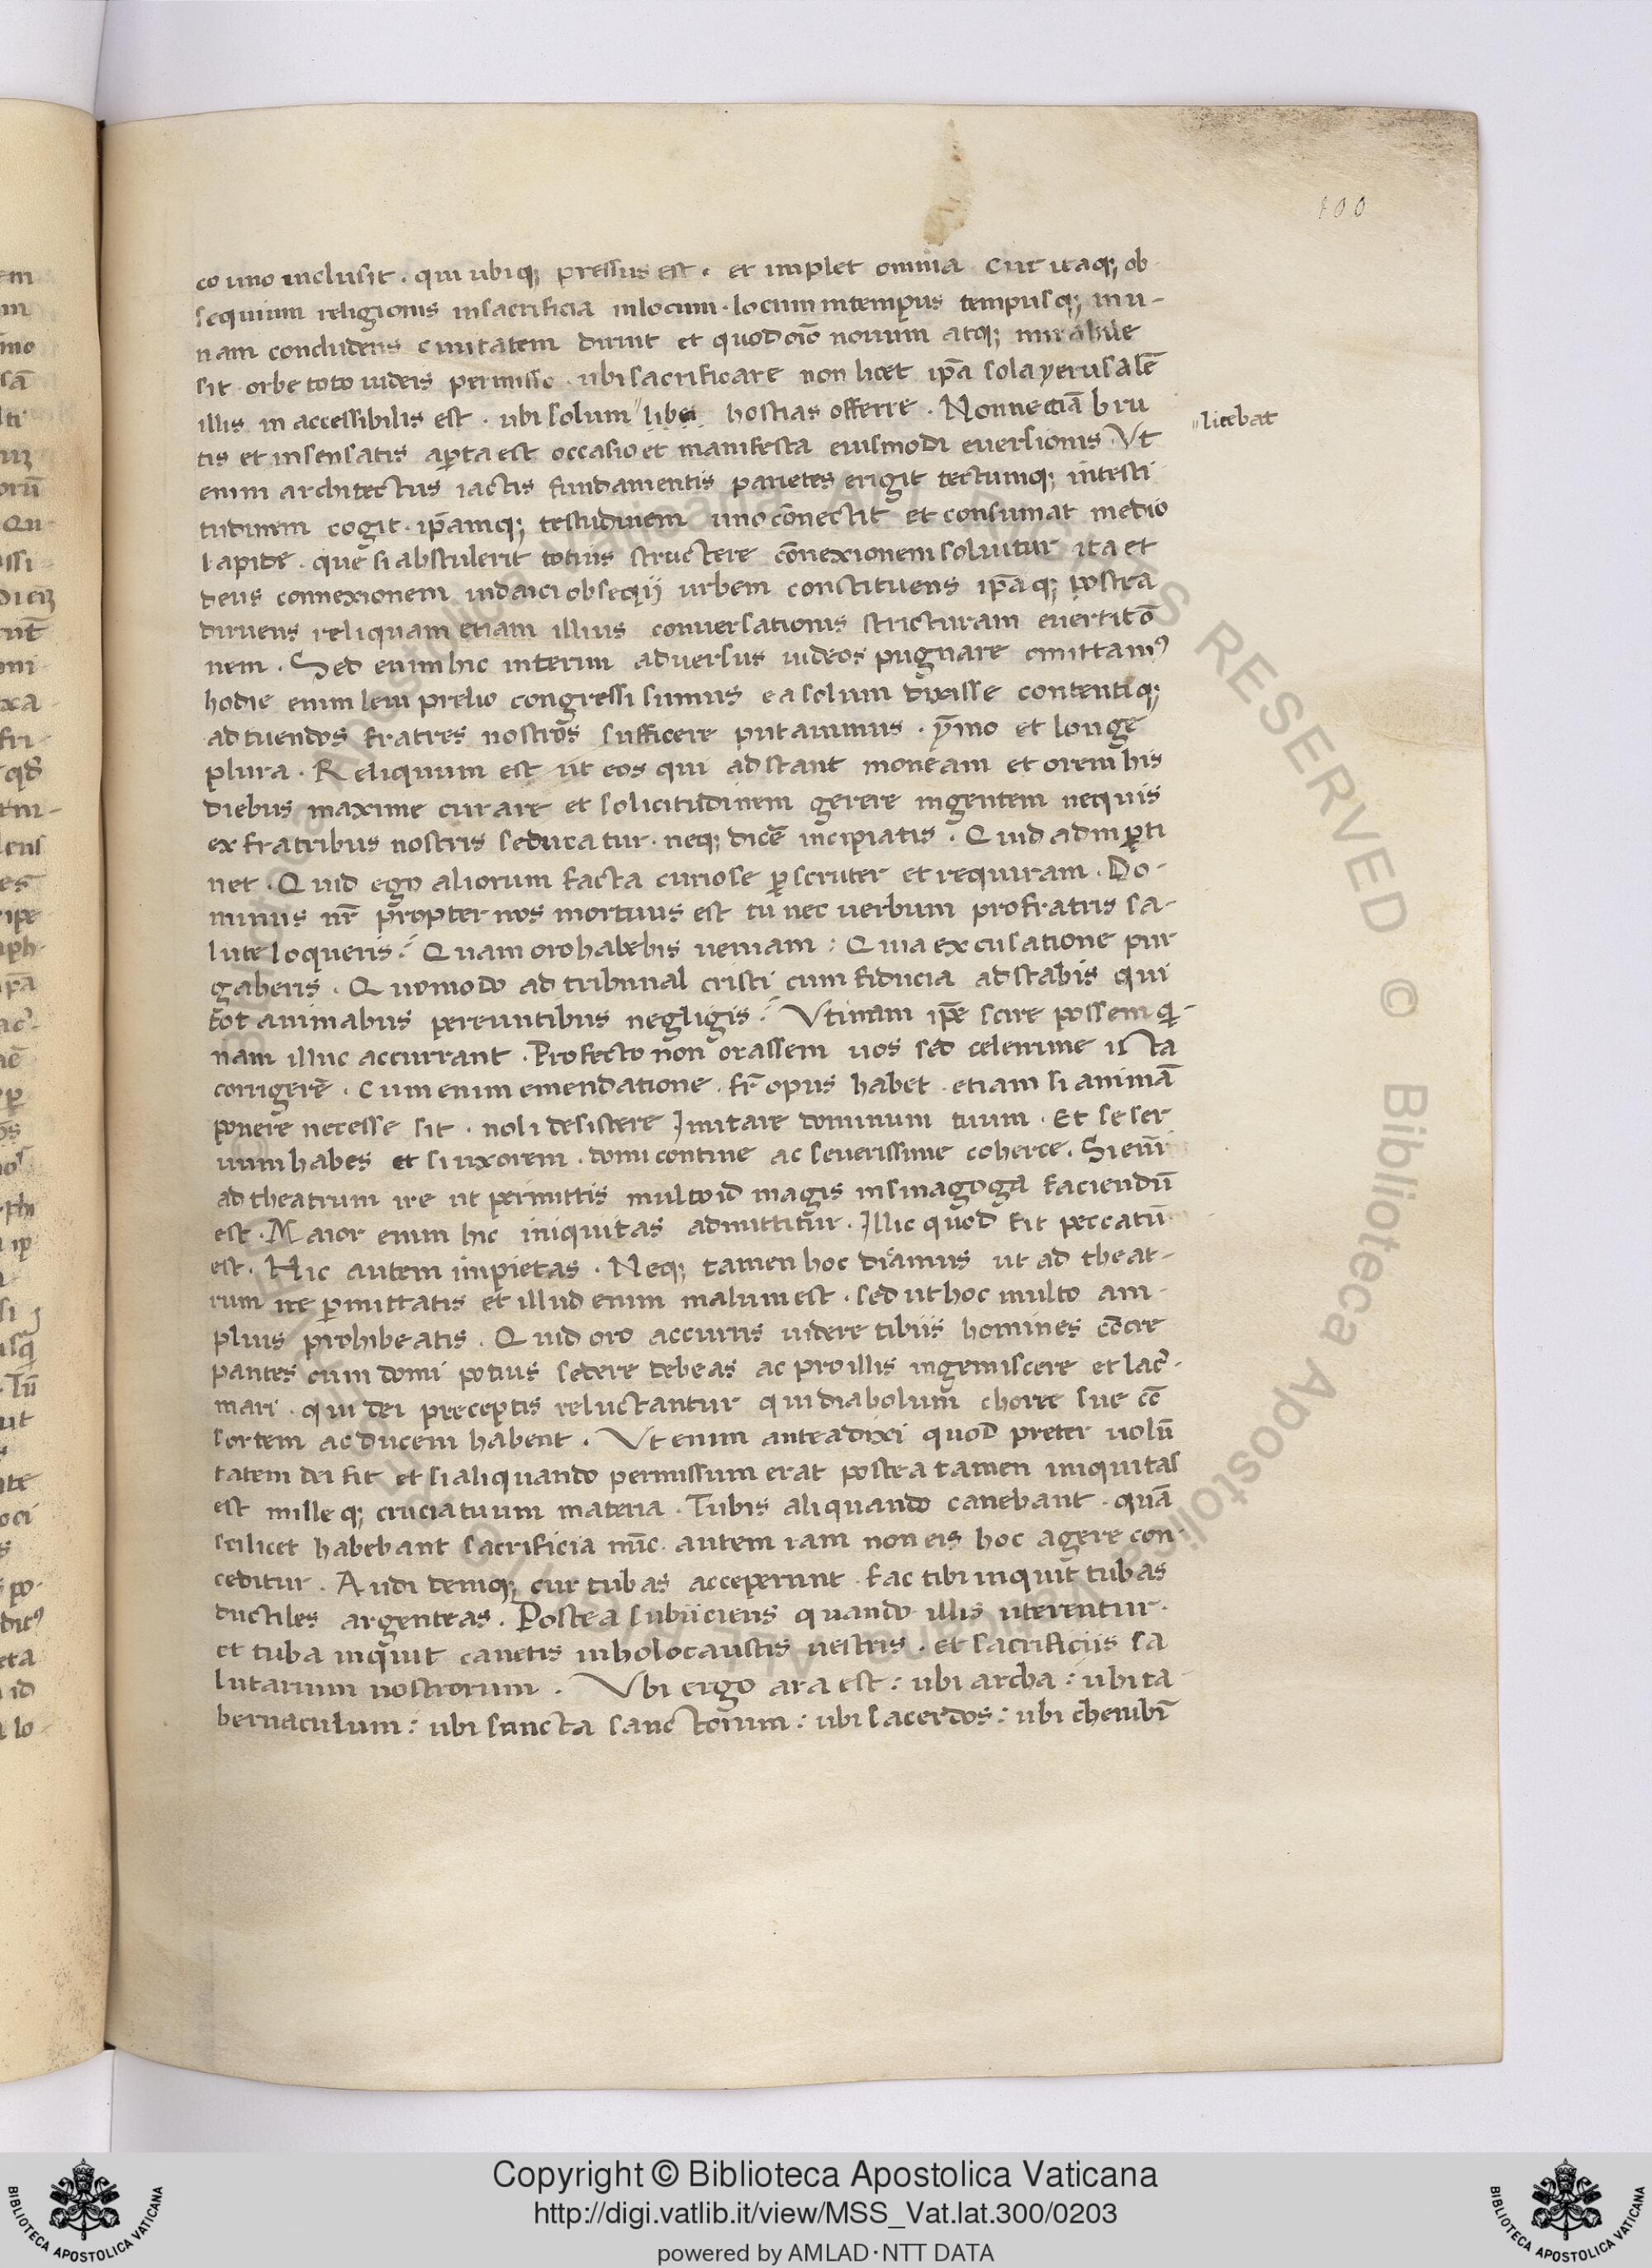 100
co uno inclusit . qui ubiq; pressus est . et implet omnia Cur itaq; ob
sequium religionis in sacrificia in locum . locum in tempus tempusq; in u-
nam concludens civitatem diruit et quod oīo novum atq; mirabile
sit . orbe toto iudeis permisso . ubi sacrificare non licet ip̄a sola yerusalē
illis in accessibilis est . ubi solum " hostias offerre . Nonne etiā bru
"licebat
tis et insensatis ap̱ta est occasio et manifesta eiusmodi eversionis . Ut
enim architectus iactis fundamentis parietes erigit tectumq; in testi
tudinem cogit . ip̄amq; testudinem uno cōnectit et consumat medio
lapide . quē si abstulerit totius structere cōnexionem soluitur ita et
deus connexionem iudaici obsequij urbem constituens ip̄aq; postea
diruens reliquam etiam illius conversationis stricturam evertit ō
nem . Sed enim hic interim adversus iudeos pugnare omittam⁹
hodie enim levi prelio congressi sumus ea solum dixisse contentiq;
ad tuendos fratres nostros sufficere putavimus . ȳmo et longe
plura . Reliquum est ut eos qui adstant moneam et orem his
diebus maxime curare et solicitudinem gerere ingentem nequis
ex fratribus nostris seducatur . neq; dicē incipiatis . Quid ad m p̱ti
net . Quid ego aliorum facta curiose p̱scruter et requiram . Do-
minus nr̄ propter nos mortuus est tu nec uerbum pro fratris sa-
lute loqueris ? Quam oro habebis ueniam : Qua excusatione pur
gaberis . Quomodo ad tribunal cristi cum fiducia adstabis qui
tot animabus pereuntibus negligis ? Utinam ip̄e scire possem qi-
nam illuc accurrant . Profecto non orassem uos sed celerrime iista
corrigerē . Cum enim emendatione . fr̄ opus habet . etiam si animā
ponere necesse sit . noli desistere Imitare dominum tuum . Et se ser
uum habes et si uxorem . domi contine ac severissime coherce . Si enī
ad theatrum ire ut permittis multo id magis in sinagoga faciendū
est . Maior enim hic iniquitas admittitur . Illic quod fit peccatū
est . Hic autem impietas . Neq; tamen hoc dicimus ut ad theat-
rum ire p̱mittatis et illud enim malum est . sed ut hoc multo am-
plius prohibeatis . Quid oro accurris uidere tibiis homines cōcre
pantes cum domi potius sedere debeas ac pro illis ingemiscere et lac̓-
mari . qui dei preceptis reluctantur qui diabolum choree sue cō
sortem ac ducem habent . Ut enim antea dixi quod preter uolū
tatem dei fit et si aliquando permissum erat postea tamen iniquitas
est milleq; cruciatuum materia . Tubis aliquando canebant . quā
scilicet habebant sacrificia nūc autem iam non eis hoc agere con-
ceditur . Audi deniq; cur tubas acceperunt . fac tibi inquit tubas
ductiles argenteas . Postea subiiciens quando illis uterentur .
et tuba inquit canetis in holocaustis uestris . et sacrificiis sa
lutarium nostrorum . Ubi ergo ara est : ubi archa : ubi ta
bernaculum : ubi suncta sanctorum : ubi sacerdos : ubi cherubī
Copyright © Biblioteca Apostolica Vaticana
http://digi.vatlib.it/view/MSS_Vat.lat.300/0203
powered by AMLAD·NTT DATA
BIBLIOTECA APOSTOLICA VATICANA
BIBLIOTECA APOSTOLICA VATICANA